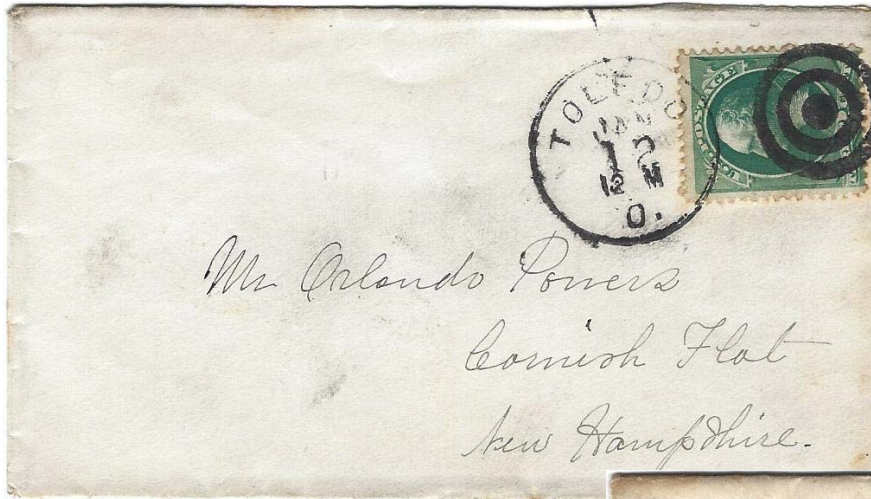 TOLEDO
JAN
12
12 M
O.
U.S. POSTAGE
Mr Orlando Powers
Cornish Flat
New Hampshire.